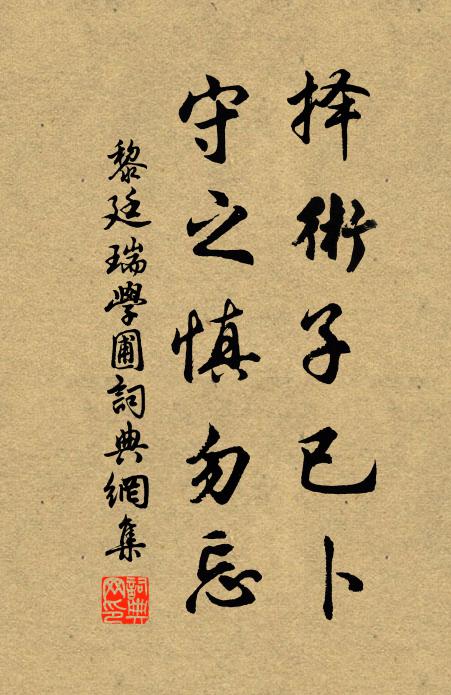 择術子已卜
守之慎勿忘
黎廷瑞學圃詞典網集
詞典
网印